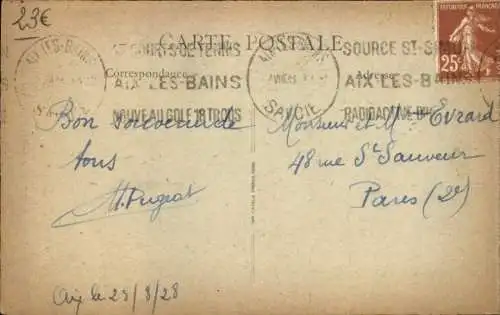 23€
CARTE POSTALE
Correspondance
Adresse
AIX-LES-BAINS
COURTS DE TENNIS
AIX LES-BAINS
NOUVEAU GOLF 18 TROUS
SAVOIE
SOURCE ST-SIMON
AIX LES-BAINS
REPUBLIQUE FRANÇAISE
25c
Bon souvenir de
tous
Monsieur et Me Evrard
48 rue St Sauveur
Paris (2e)
Aix le 29/8/28